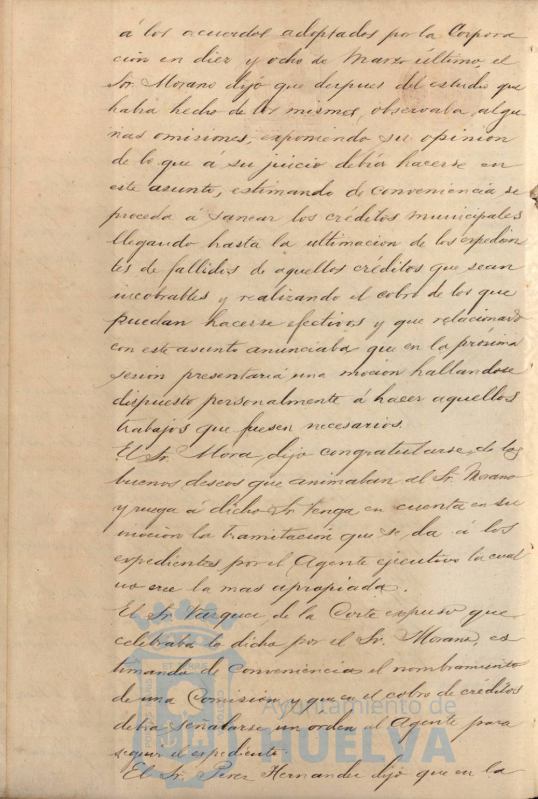 á los acuerdos adoptados por la Corpora
cion en diez y ocho de Marzo último, el
Sr. Morano dijó que despues del estudio que
habia hecho de los mismos, observaba algu-
nas omisiones, exponiendo su opinion
de lo que á su juicio debia hacerse en
este asunto, estimando de conveniencia se
proceda á sanear los créditos municipales
llegando hasta la ultimacion de los expedien
tes de fallidos de aquellos créditos que sean
incobrables y realizando el cobro de los que
puedan hacerse efectivos y que relacionado
con este asunto anunciaba que en la próxima
sesion presentaria una mocion hallandose
dispuesto personalmente á hacer aquellos
trabajos que fuesen necesarios.
El Sr. Mora, dijo congratularse, de los
buenos deseos que animaban al Sr. Morano
y ruega á dicho Sr. tenga en cuenta en su
mocion la tramitación que se da á los
expedientes por el Agente ejecutivo la cual
no cree la mas apropiada.
El Sr. Vazquez de la Corte expuso que
celebraba lo dicho por el Sr. Morano, es
timando de conveniencia el nombramiento
de una Comision y que en el cobro de créditos
debia señalarse un orden al Agente para
seguir el expediente.
El Sr. Perez Hernandez dijo que en la
Ayuntamiento de
HUELVA